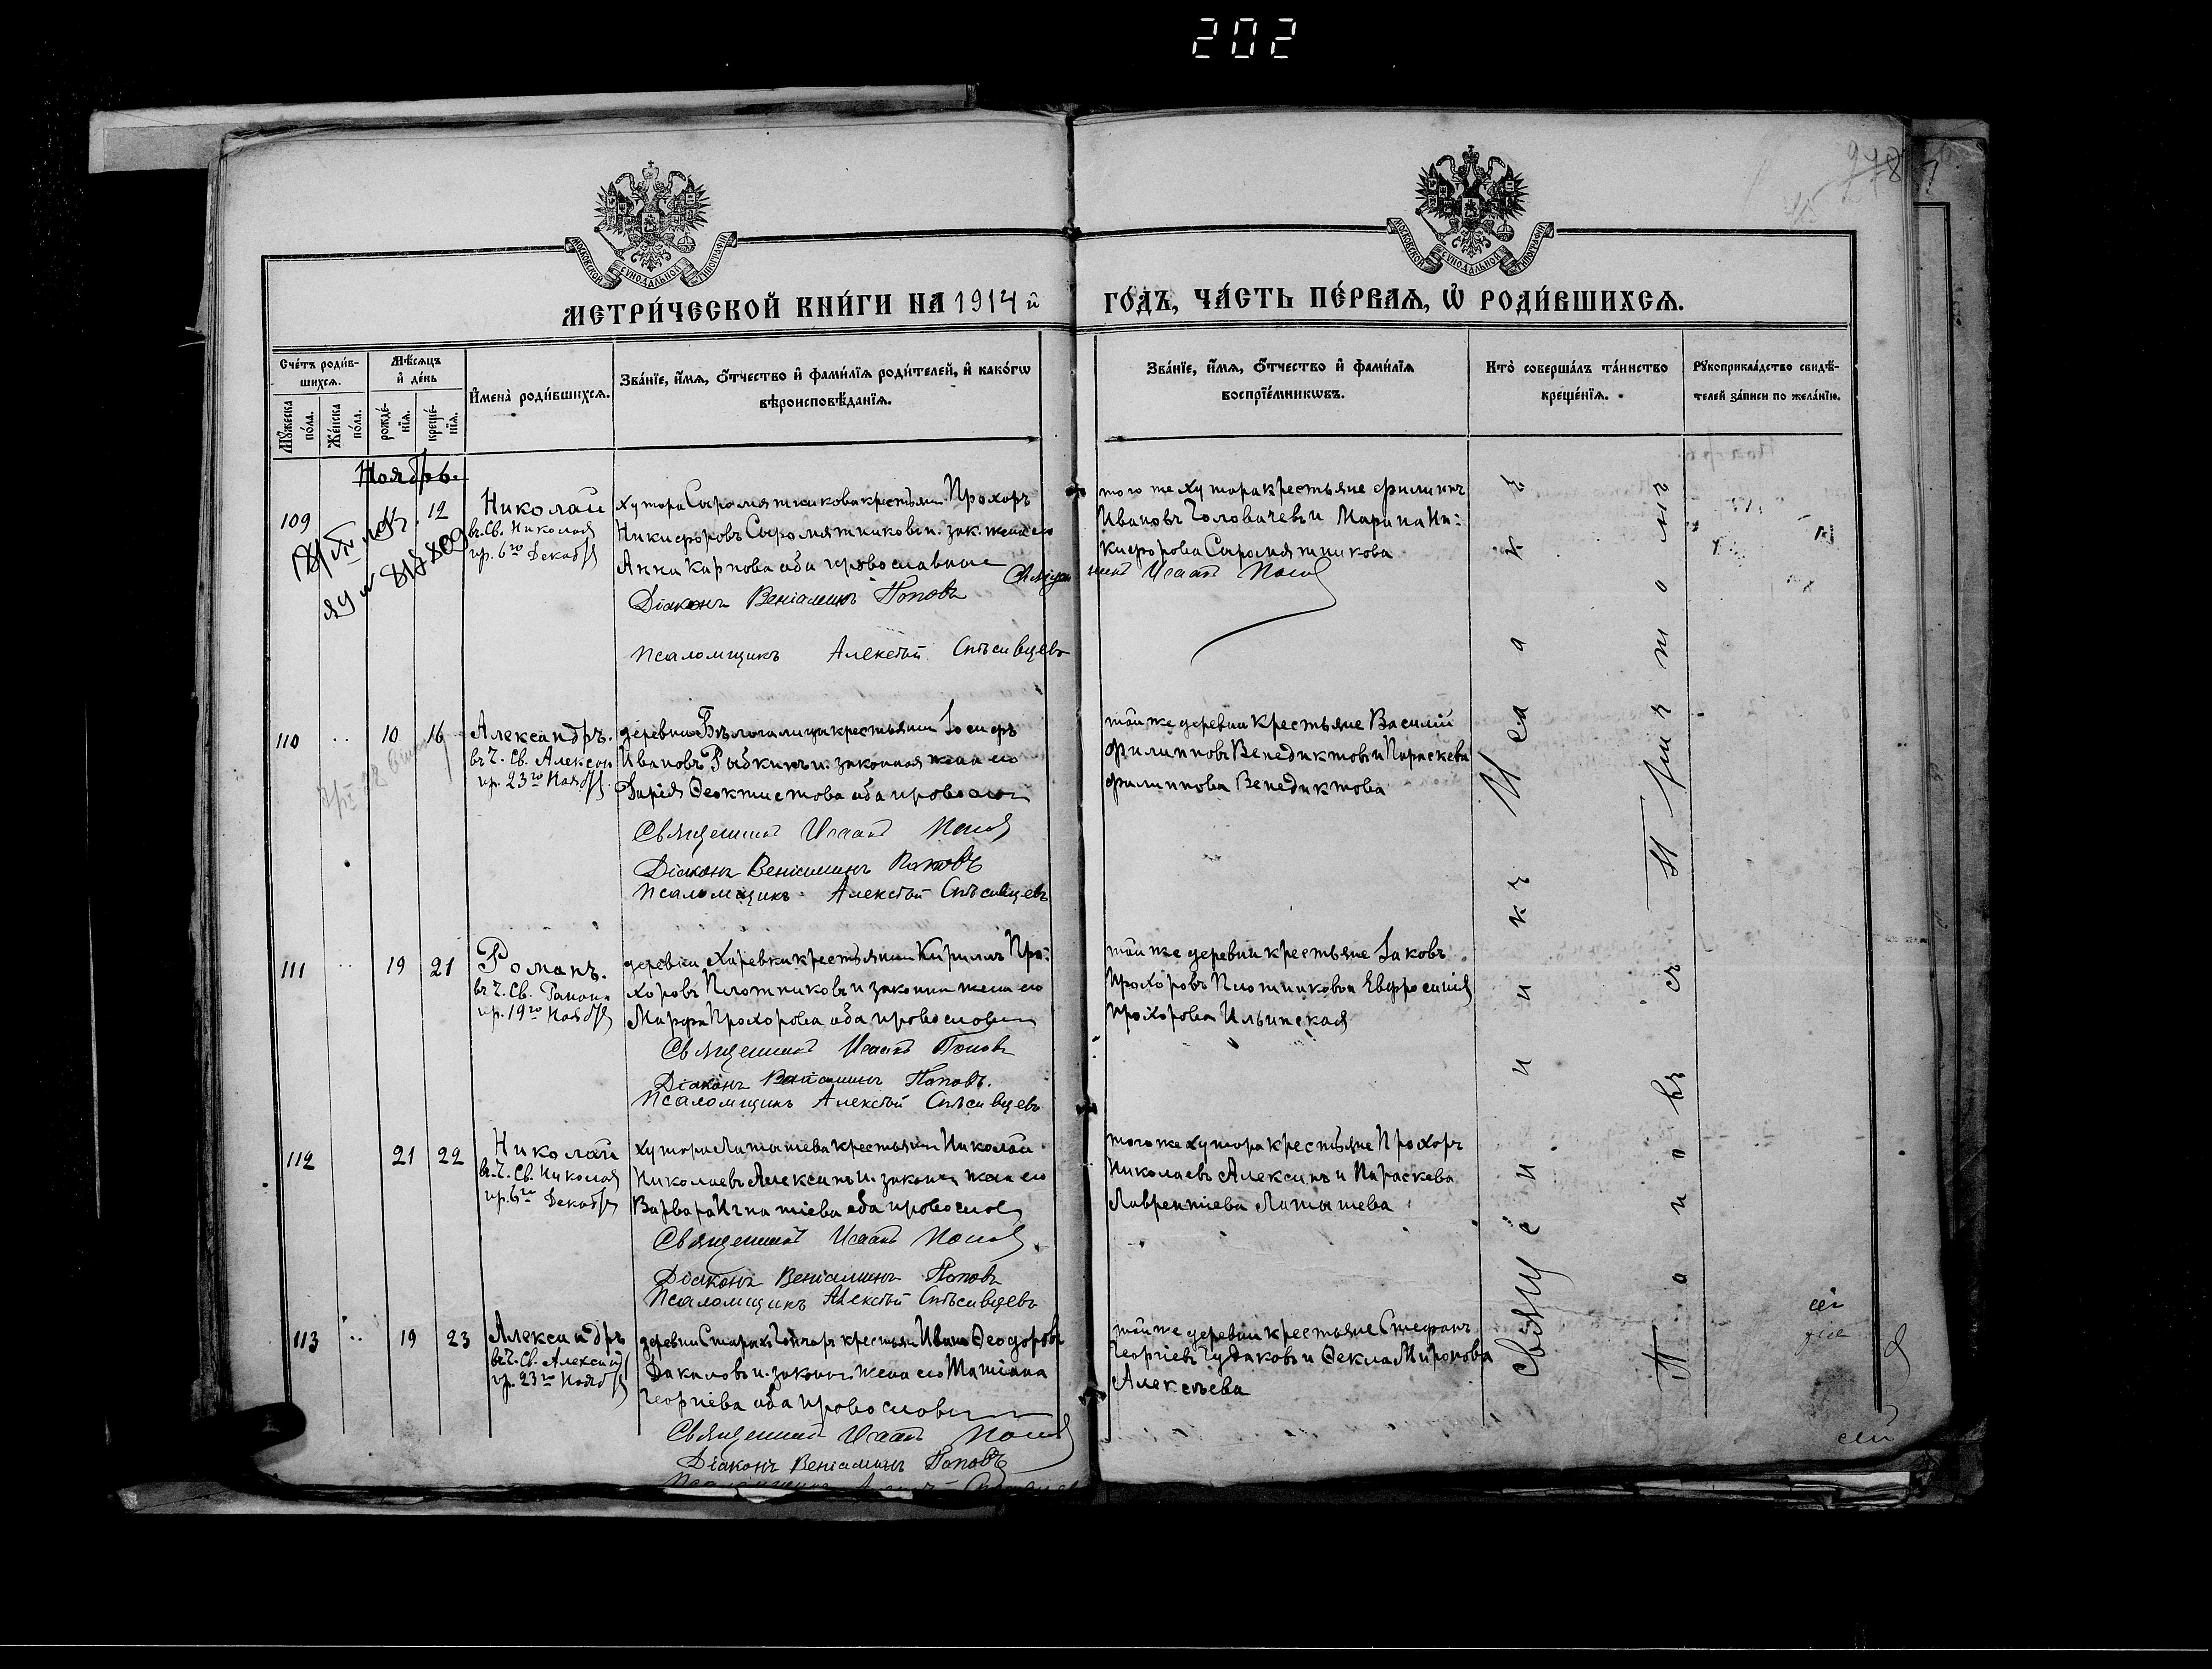 202
МОСКОВСКОЙ СѴНОДАЛЬНОЙ ТИПОГРАФІИ
МОСКОВСКОЙ СѴНОДАЛЬНОЙ ТИПОГРАФІИ
МЕТРИ́ЧЕСКОЙ КНИ́ГИ НА 1914 й
ГО́ДЪ, ЧА́СТЬ ПЕ́РВАѦ, Ѡ РОДИ́ВШИХСѦ.
Сче́тъ роди́в-
шихсѧ.
Мꙋжеска по́ла.
Же́нска по́ла.
Мѣ́сѧцъ и де́нь
рожде́-
нїѧ.
креще́-
нїѧ.
Имена̀ роди́вшихсѧ.
Зва́нїе, и́мѧ, о́тчество и фами́лїѧ роди́телей, и како́гѡ
вѣроисповѣ́данїѧ.
Зва́нїе, и́мѧ, о́тчество и фами́лїѧ
воспрїе́мникѡвъ.
Кто̀ соверша́лъ та́инство
креще́нїѧ.
Рꙋкоприкла́дство свидѣ́-
телей за́писи по жела́нїю.
Ноябрь.
109
11
12
Николай
въ Св. Николая
пр. 6го Декабря
хутора Сыромятникова крестьян. Прохоръ
Никифоровъ Сыромятниковъ и зак. жена его
Анна Карпова оба православные
Діаконъ Веніаминъ Поповъ
Псаломщикъ Алексѣй Спѣсивцевъ
того же хутора крестьяне Филиппъ
Ивановъ Головачевъ и Марина Ни-
кифорова Сыромятникова
Исаакъ Поповъ
110
10
16
Александръ.
въ ч. Св. Александ
пр. 23го Ноября
деревни Бѣлогалицы крестьянин Іосифъ
Ивановъ Рыбкинъ и законная жена его
Дарія Ѳеоктистова оба православ
Священникъ Исаакъ Поповъ
Діаконъ Веніаминъ Поповъ
Псаломщикъ Алексѣй Спѣсивцевъ
той же деревни крестьяне Василій
Филипповъ Венедиктовъ и Параскева
Филиппова Венедиктова
111
19
21
Романъ.
въ ч. Св. Романа
пр. 19го Ноября
деревни Харевки крестьянин Кириллъ Про-
хоровъ Плотниковъ и законная жена его
Марфа Прохорова оба православн
Священникъ Исаакъ Поповъ
Діаконъ Веніаминъ Поповъ.
Псаломщикъ Алексѣй Спѣсивцевъ
той же деревни крестьяне Іаковъ
Прохоровъ Плотниковъ и Евфросинія
Прохорова Ильинская
112
21
22
Николай
въ ч. Св. Николая
пр. 6го Декабря
хутора Латышева крестьянин Николай
Николаевъ Алексинъ и законная жена его
Варвара Игнатіева оба православ
Священникъ Исаакъ Поповъ
Діаконъ Веніаминъ Поповъ
Псаломщикъ Алексѣй Спѣсивцевъ
того же хутора крестьяне Прохоръ
Николаевъ Алексинъ и Параскева
Лаврентіева Латышева
113
19
23
Александръ
въ ч. Св. Александ
пр. 23го Ноября
деревни крестьян Иванъ Ѳеодоровъ
и законная жена его Татіана
Георгіева оба православн
Священникъ Исаакъ Поповъ
Діаконъ Веніаминъ Поповъ
Псаломщикъ Алексѣй Спѣсивцевъ
той же деревни крестьяне Стефанъ
Георгіевъ Чудаковъ и Ѳекла Миронова
Алексѣева
Священникъ Исаакъ
Поповъ съ